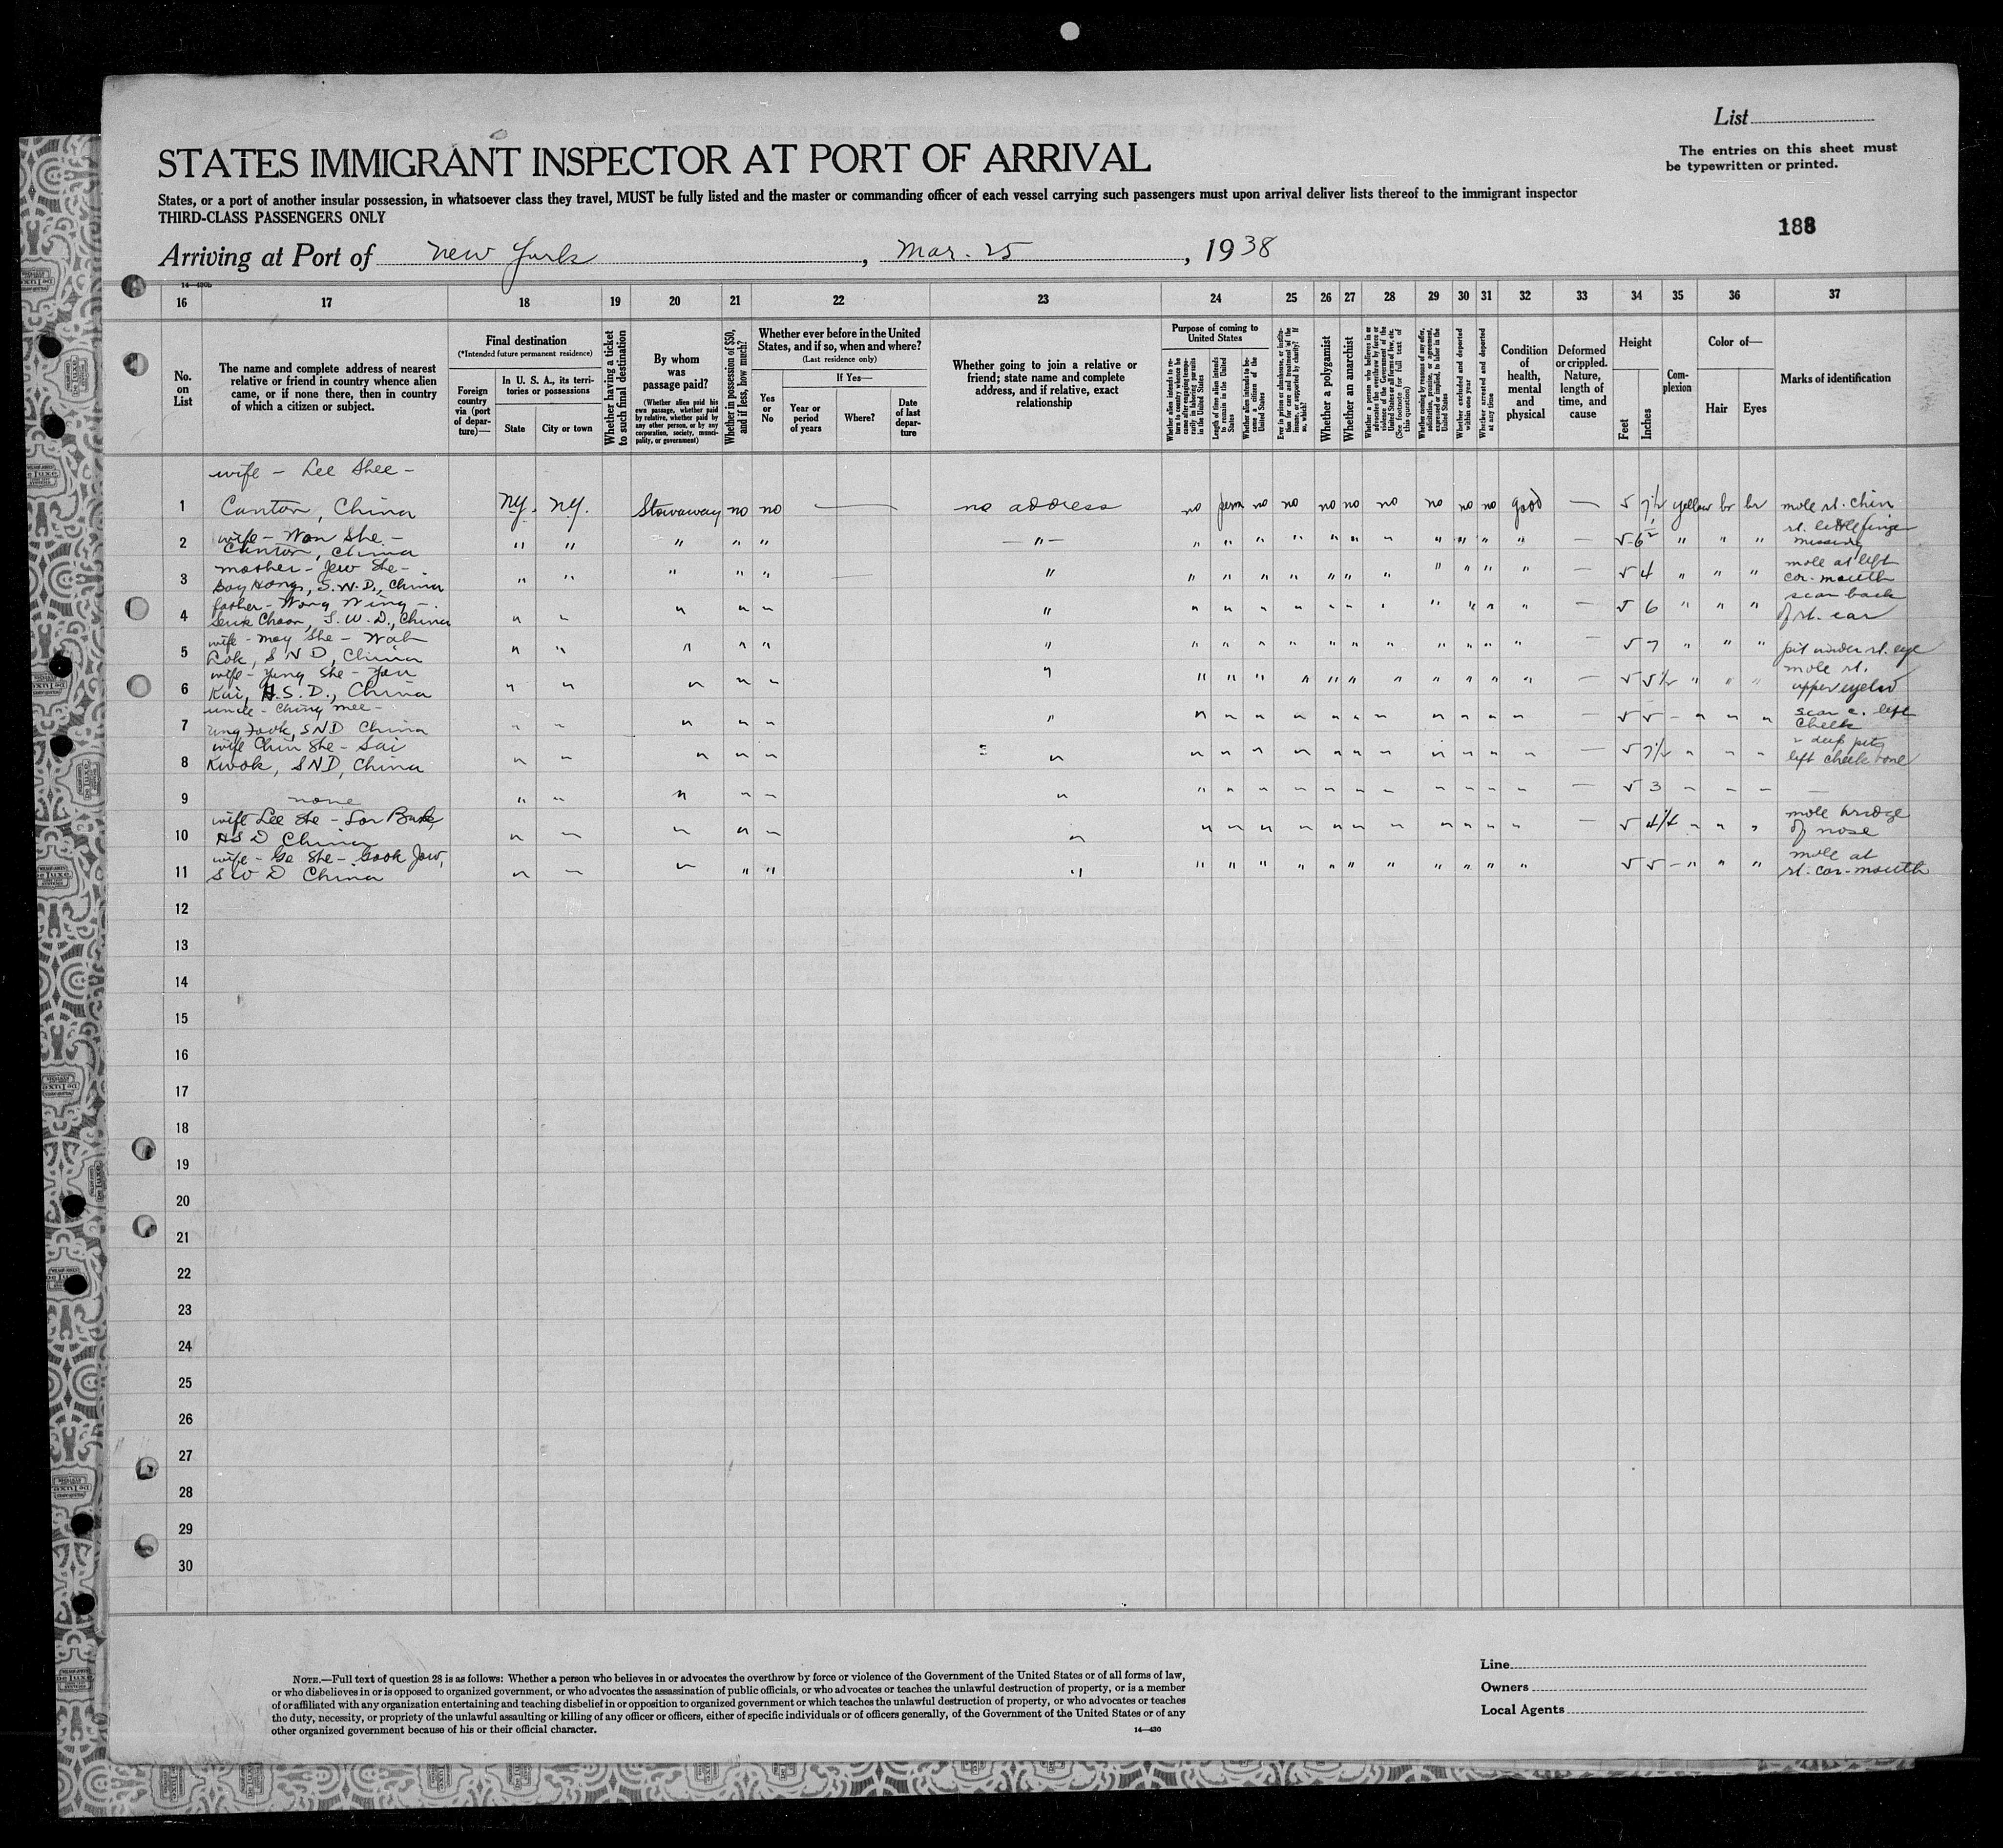 List
The entries on this sheet must
be typewritten or printed.
STATES IMMIGRANT INSPECTOR AT PORT OF ARRIVAL
States, or a port of another insular possession, in whatsoever class they travel, MUST be fully listed and the master or commanding officer of each vessel carrying such passengers must upon arrival deliver lists thereof to the immigrant inspector
THIRD-CLASS PASSENGERS ONLY
188
Arriving at Port of New York, Mar. 25, 1938
14—490b
16 17 18 19 20 21 22 23 24 25 26 27 28 29 30 31 32 33 34 35 36 37
No. on List
The name and complete address of nearest relative or friend in country whence alien came, or if none there, then in country of which a citizen or subject.
Final destination
(*Intended future permanent residence)
Foreign country via (port of departure)—
In U. S. A., its territories or possessions
State
City or town
Whether having a ticket to such final destination
By whom was passage paid?
(Whether alien paid his own passage, whether paid by relative, whether paid by any other person, or by any corporation, society, municipality, or government)
Whether in possession of $50, and if less, how much?
Whether ever before in the United States, and if so, when and where?
(Last residence only)
Yes or No
If Yes—
Year or period of years
Where?
Date of last departure
Whether going to join a relative or friend; state name and complete address, and if relative, exact relationship
Purpose of coming to United States
Whether alien intends to return to country whence he came after engaging temporarily in laboring pursuits in the United States
Length of time alien intends to remain in the United States
Whether alien intends to become a citizen of the United States
Ever in prison or almshouse, or institution for care and treatment of the insane, or supported by charity? If so, which?
Whether a polygamist
Whether an anarchist
Whether a person who believes in or advocates the overthrow by force or violence of the Government of the United States or all forms of law, etc. (See footnote for full text of this question)
Whether coming by reason of any offer, solicitation, promise, or agreement, expressed or implied, to labor in the United States
Whether excluded and deported within one year
Whether arrested and deported at any time
Condition of health, mental and physical
Deformed or crippled. Nature, length of time, and cause
Height
Feet
Inches
Complexion
Color of—
Hair
Eyes
Marks of identification
wife - Lee Shee -
1 Canton, China N.Y. N.Y. Stowaway no no — no address no perm no no no no no no no no good — 5 7½ yellow br br mole rt. chin
wife - Won She - rt. little finger
2 Canton, China " " " " " — " — " " " " " " " " " " " — 5 6 " " " missing
mother - Jew She - mole at left
3 Boy Hong, S.W.D., China " " " " " — " " " " " " " " " " " " — 5 4 " " " cor. mouth
father - Wong Wing - scar back
4 Seuk Choon, S.W.D., China " " " " " " " " " " " " " " " " " — 5 6 " " " of rt. ear
wife - Moy She - Wah
5 Lok, S N D, China " " " " " " " " " " " " " " " " " — 5 7 " " " pit under rt. eye
wife - Yung She - Yen mole rt.
6 Kui, H.S.D., China " " " " " " " " " " " " " " " " " — 5 5½ " " " upper eyelid
uncle - Ching Mee - scar c. left
7 Ung Fook, SND China " " " " " " " " " " " " " " " " " — 5 5 - " " " cheek
wife Chin She - Sai 2 deep pits
8 Kwok, SND, China " " " " " " " " " " " " " " " " " — 5 7½ " " " left cheek bone
9 none " " " " " " " " " " " " " " " " " — 5 3 " " " —
wife Lee She - Lor Bark, mole bridge
10 HSD China " " " " " " " " " " " " " " " " " — 5 4¼ " " " of nose
wife - Ge She - Gook Jow, mole at
11 S W D China " " " " " " " " " " " " " " " " " — 5 5 - " " " rt. cor. mouth
12
13
14
15
16
17
18
19
20
21
22
23
24
25
26
27
28
29
30
NOTE.—Full text of question 28 is as follows: Whether a person who believes in or advocates the overthrow by force or violence of the Government of the United States or of all forms of law,
or who disbelieves in or is opposed to organized government, or who advocates the assassination of public officials, or who advocates or teaches the unlawful destruction of property, or is a member
of or affiliated with any organization entertaining and teaching disbelief in or opposition to organized government or which teaches the unlawful destruction of property, or who advocates or teaches
the duty, necessity, or propriety of the unlawful assaulting or killing of any officer or officers, either of specific individuals or of officers generally, of the Government of the United States or of any
other organized government because of his or their official character.
14—430
Line
Owners
Local Agents